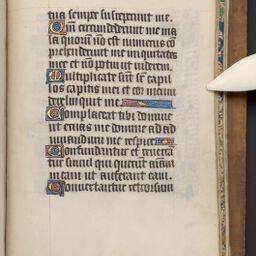 tua semper susceperunt me.
Qm̄ circundederunt me ma
la quorū nō est numerus cō
prehenderunt me iniquitates
mee et nō potui ut viderem.
Multiplicate sūt sr̄ capil
los capitis mei et cor meum
dereliquit me.
Complaceat tibi domine
ut eruas me domine ad ad
iuuandum me respice
Confundantur et reuerēā
tur simul qui querūt aīam
meam ut auferant eam.
Conuertantur retrorsum